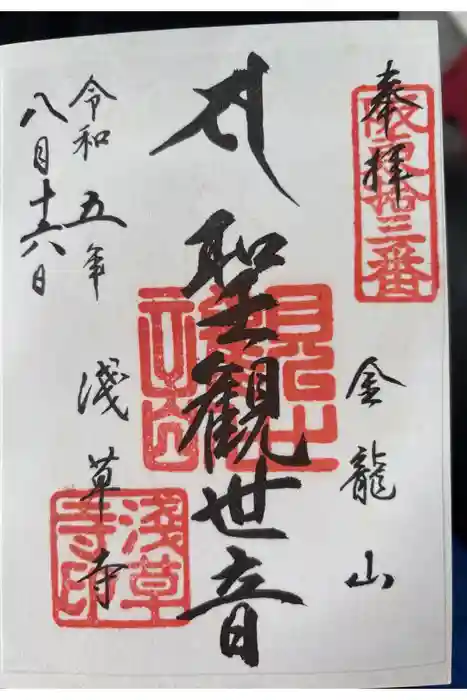 奉拝
阪東拾三番
金龍山
聖観世音
令和五年
八月十六日
浅草寺
浅草寺印